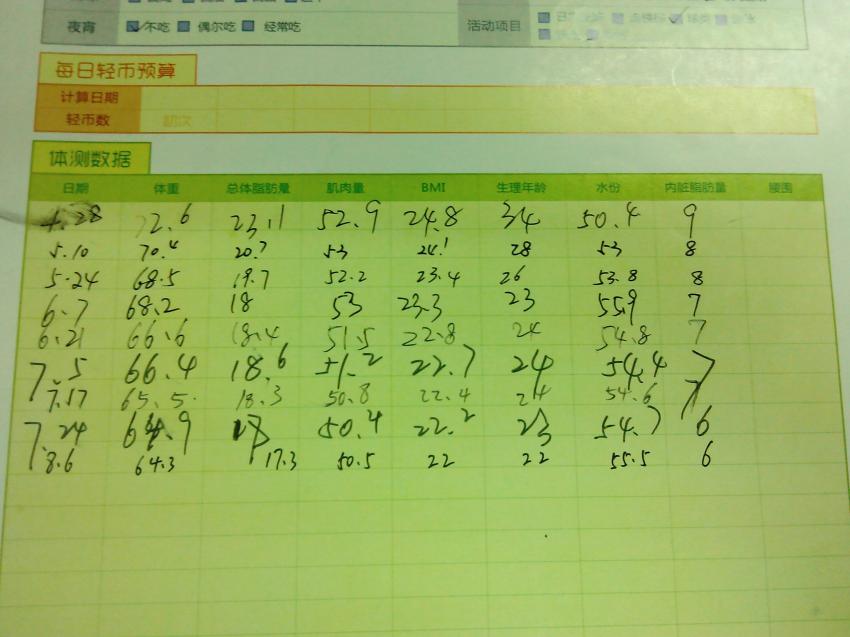 夜宵 不吃 偶尔吃 经常吃 活动项目
每日轻币预算
计算日期
轻币数 初次
体测数据
日期 体重 总体脂肪量 肌肉量 BMI 生理年龄 水份 内脏脂肪量 腰围
4.28 72.6 23.1 52.9 24.8 34 50.4 9
5.10 70.4 20.7 53 24.1 28 53 8
5.24 68.5 19.7 52.2 23.4 26 53.8 8
6.7 68.2 18 53 23.3 23 55.9 7
6.21 66.6 18.4 51.5 22.8 24 54.8 7
7.5 66.4 18.6 51.2 22.7 24 54.4 7
7.17 65.5 18.3 50.8 22.4 24 54.6 7
7.24 64.9 18 50.4 22.2 23 54.7 6
8.6 64.3 17.3 50.5 22 22 55.5 6